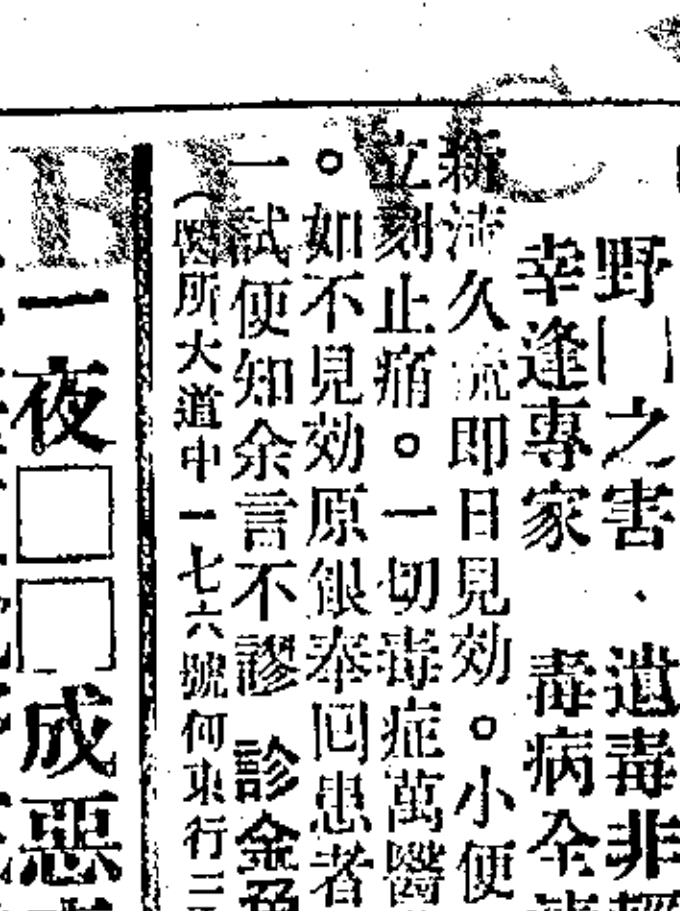 野□之害．遺毒非
幸逢專家 毒病全
新沛久流即日見効。小便
立刻止痛。一切毒症萬醫
。如不見効原銀奉囘患者
一試便知余言不謬 診金
(醫所大道中一七六號何東行三
一夜□□成惡